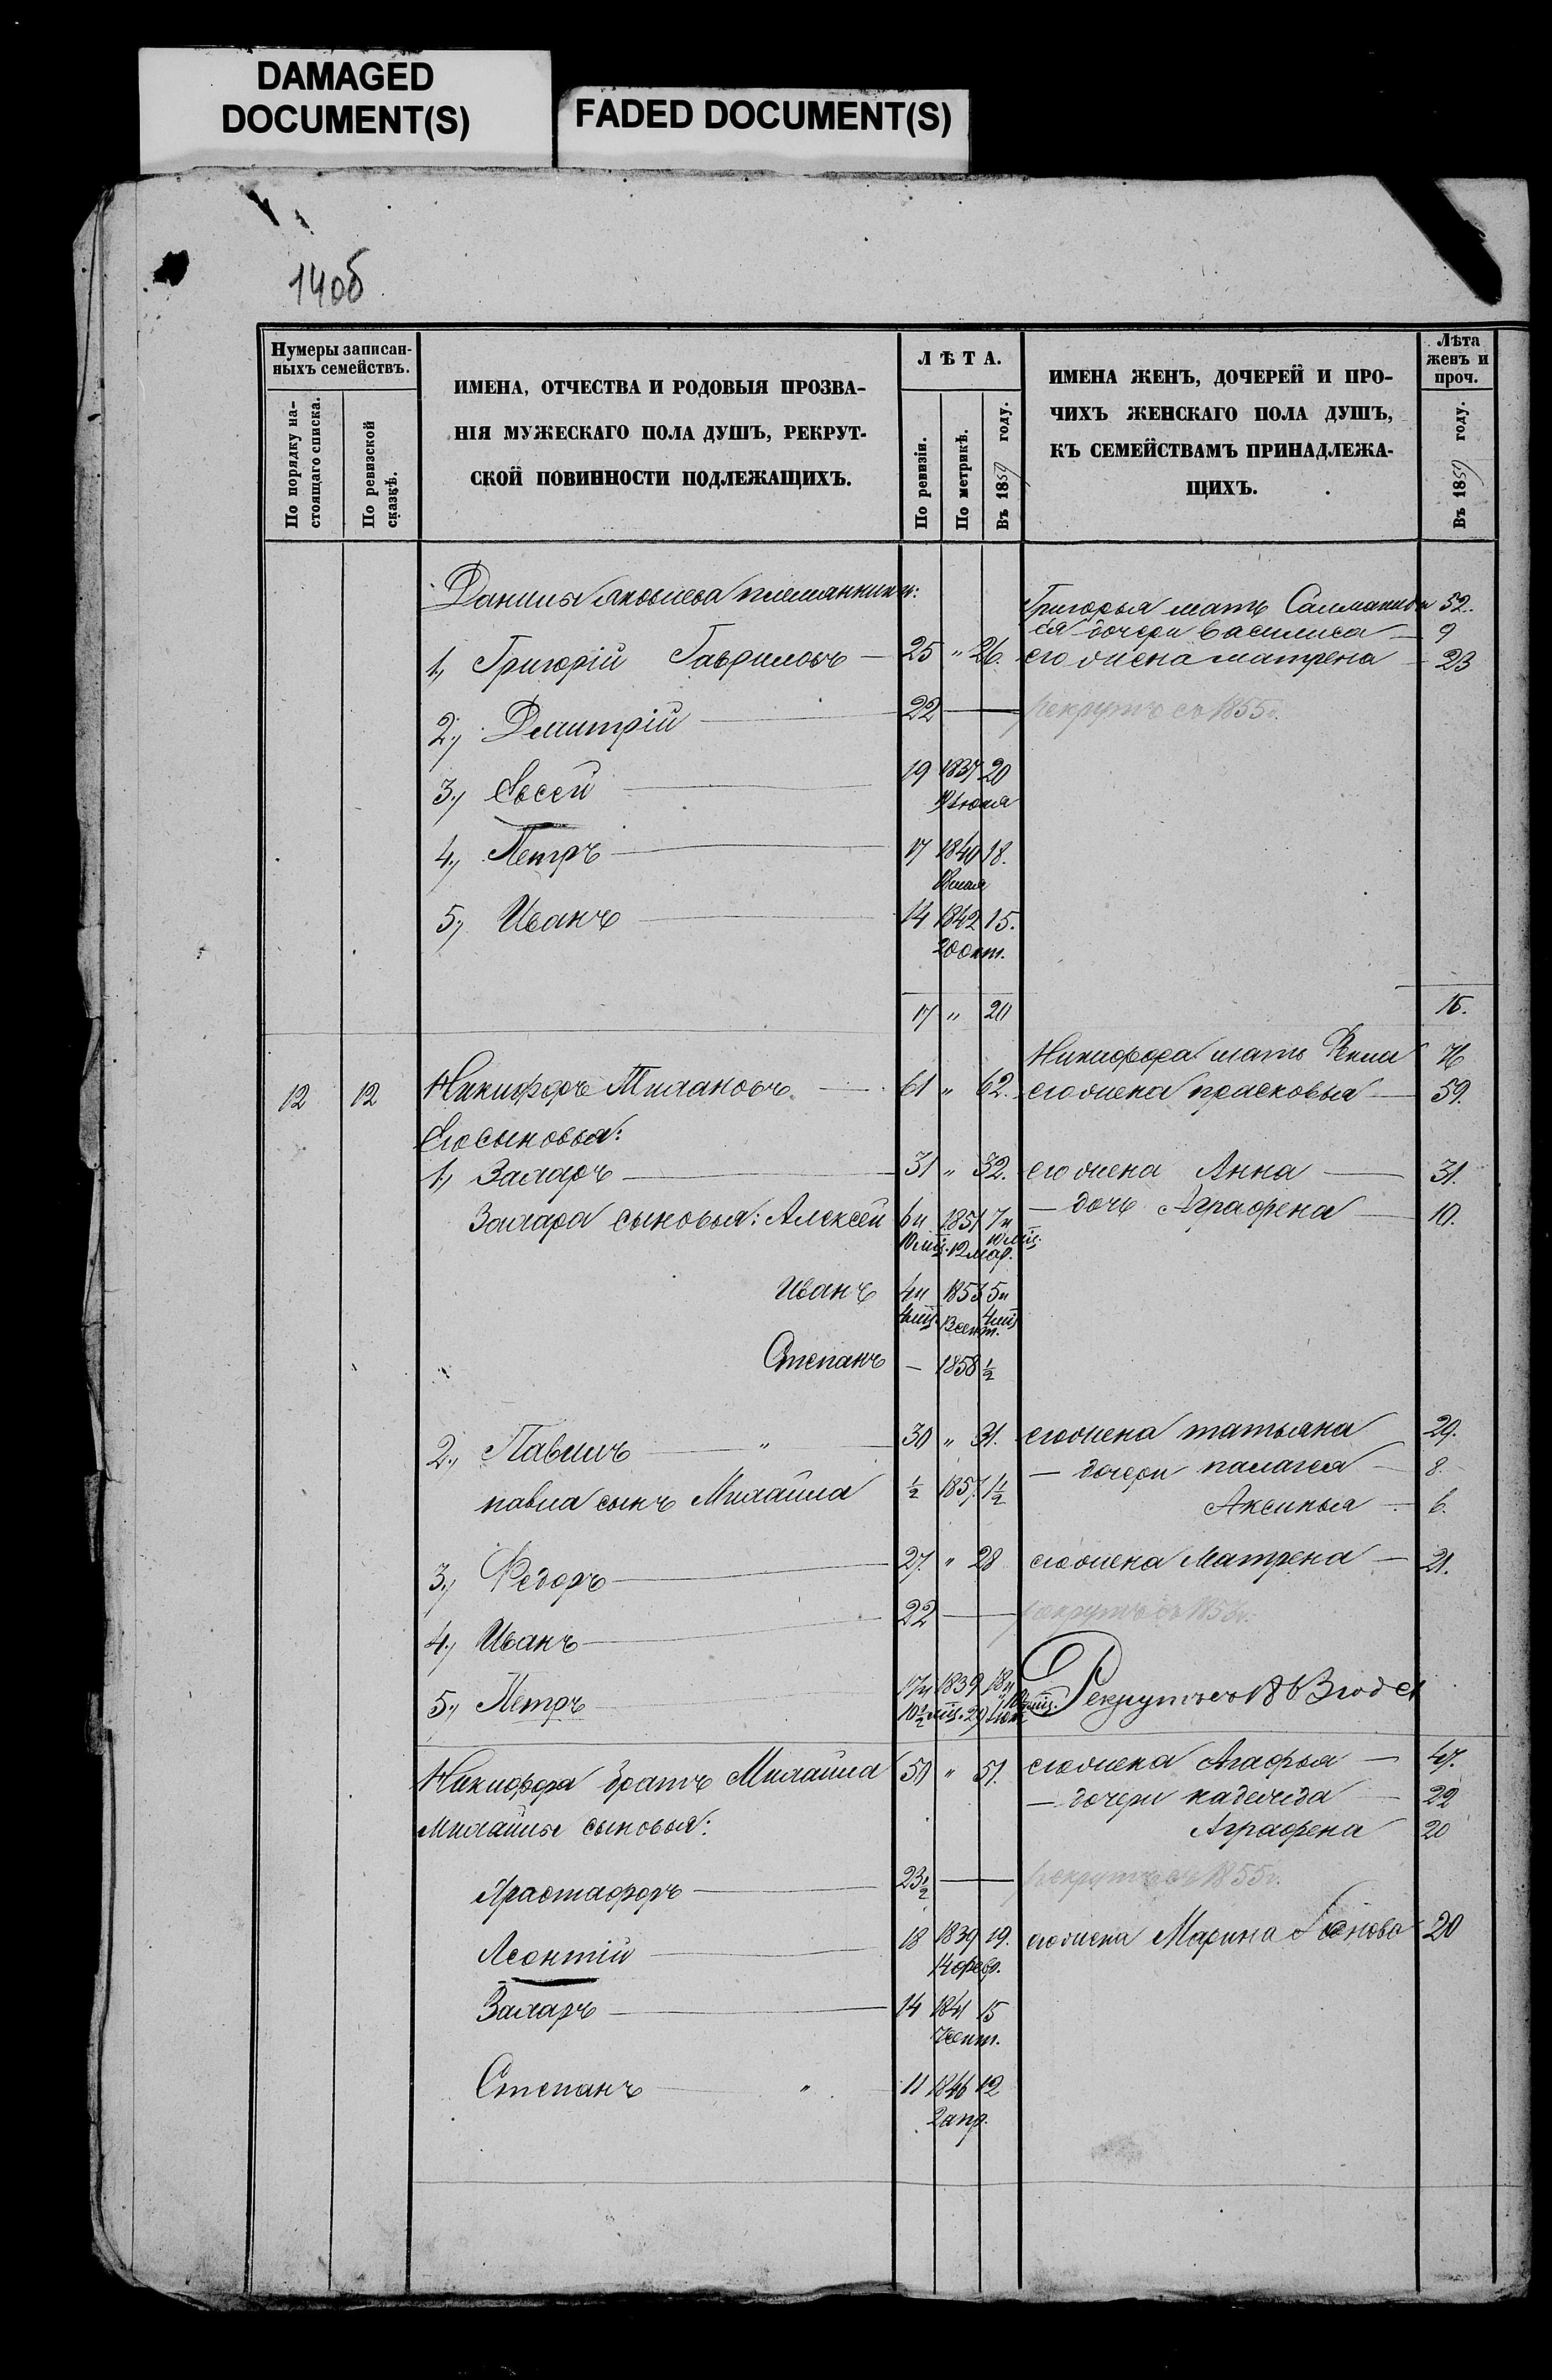 DAMAGED
DOCUMENT(S)
FADED DOCUMENT(S)
140б
Нумеры записан-
ныхъ семействъ.
По порядку на-
стоящаго списка.
По ревизской
сказкѣ.
ИМЕНА, ОТЧЕСТВА И РОДОВЫЯ ПРОЗВА-
НІЯ МУЖЕСКАГО ПОЛА ДУШЪ, РЕКРУТ-
СКОЙ ПОВИННОСТИ ПОДЛЕЖАЩИХЪ.
ЛѢТА.
По ревизіи.
По метрикѣ.
Въ 1859 году.
ИМЕНА ЖЕНЪ, ДОЧЕРЕЙ И ПРО-
ЧИХЪ ЖЕНСКАГО ПОЛА ДУШЪ,
КЪ СЕМЕЙСТВАМЪ ПРИНАДЛЕЖА-
ЩИХЪ.
Лѣта
женъ и
проч.
Въ 1859 году.
Данилы Яковлева племянники:
Григорья мать 52.
ея дочери Василиса — 9
1., Григорій Гавриловъ — 25 " 26. его жена матрена — 23
2., Дмитрій — 22 — рекрутъ съ 1855 г.
3., Евсей — 19 1837 20
Іюля
4., Петръ — 17 1840 18.
мая
5., Иванъ — 14 1842 15.
20 окт.
17 " 20 15.
Никифора мать 76
12 12 Никифоръ — 61 " 62. его жена прасковья — 59.
Его сыновья:
1., Захаръ — 31 " 32. его жена Анна — 31.
Захара сыновья: Алексей 6 и 1851 7 и — дочь Аграфена — 10.
10 мѣс. 12 мар. 10 мѣс.
Иванъ 4 и 1853 5 и
4 мѣс. 13 сент. 4 мѣс.
Степанъ — 1858 ½
2., Павилъ — " — 30 " 31. его жена татьяна 29.
павла сынъ Михайла ½ 1857. 1½ — дочери палагея — 8.
Аксинья — 6.
3., Федоръ — 27. " 28 его жена Матрена — 21.
4., Иванъ — 22 — рекрутъ съ 1853 г.
5., Петръ 17 и 1839 18 и Рекрутъ съ 1863 года
10½ мѣс. 29 10½ мѣс.
Никифора братъ Михайла 50 " 51. его жена Агафья — 47.
— дочери надежда — 22
Михайлы сыновья: Аграфена 20
Храстафоръ — 23½ — рекрутъ съ 1855 г.
Леонтій — 18 1839 19. его жена Марина 20
14 февр.
Захаръ — 14 1841 15
7 сент.
Степанъ — " — 11 1846 12
2 апр.